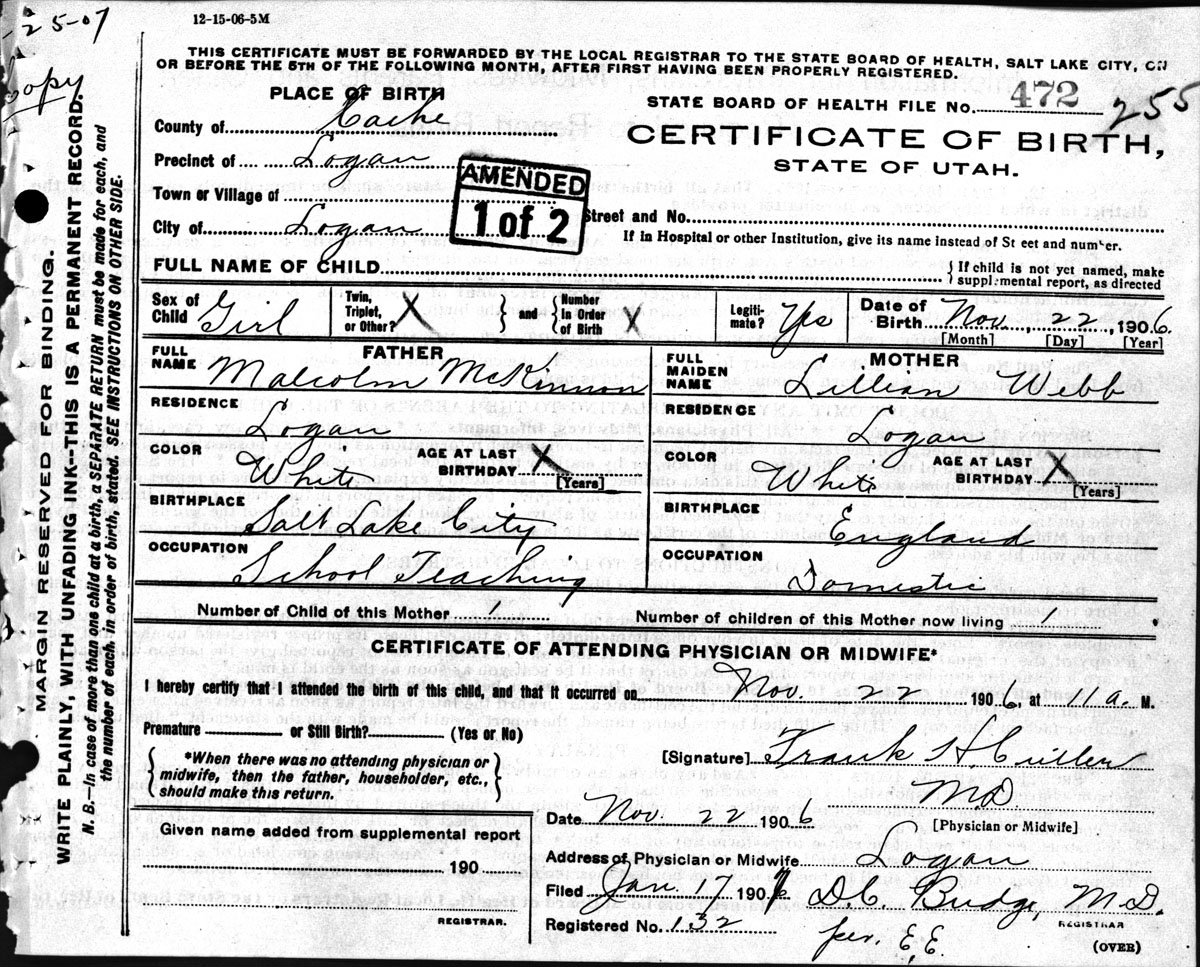 -25-07
12-15-06-5M
copy
THIS CERTIFICATE MUST BE FORWARDED BY THE LOCAL REGISTRAR TO THE STATE BOARD OF HEALTH, SALT LAKE CITY, ON
OR BEFORE THE 5TH OF THE FOLLOWING MONTH, AFTER FIRST HAVING BEEN PROPERLY REGISTERED.
PLACE OF BIRTH
STATE BOARD OF HEALTH FILE No. 472 255
County of Cache
CERTIFICATE OF BIRTH,
STATE OF UTAH.
Precinct of Logan
Town or Village of
AMENDED
1 of 2
City of Logan
Street and No.
If in Hospital or other Institution, give its name instead of St eet and number.
FULL NAME OF CHILD
} If child is not yet named, make
supplemental report, as directed
Sex of Child Girl
Twin, Triplet, or Other? X
} and { Number In Order of Birth X
Legiti-mate? Yes
Date of Birth Nov. 22, 1906.
[Month] [Day] [Year]
FATHER
FULL NAME Malcolm McKinnon
MOTHER
FULL MAIDEN NAME Lillian Webb
RESIDENCE Logan
RESIDENCE Logan
COLOR White
AGE AT LAST BIRTHDAY X
[Years]
COLOR White
AGE AT LAST BIRTHDAY X
[Years]
BIRTHPLACE Salt Lake City
BIRTHPLACE England
OCCUPATION School Teaching
OCCUPATION Domestic
Number of Child of this Mother 1
Number of children of this Mother now living 1
CERTIFICATE OF ATTENDING PHYSICIAN OR MIDWIFE*
I hereby certify that I attended the birth of this child, and that it occurred on Nov. 22 1906, at 11 a. M.
Premature or Still Birth? (Yes or No)
{ *When there was no attending physician or
midwife, then the father, householder, etc.,
should make this return. }
[Signature] Frank H. Cutler
M.D.
[Physician or Midwife]
Date Nov. 22 1906
Given name added from supplemental report
190
REGISTRAR.
Address of Physician or Midwife Logan
Filed Jan. 17, 1907
D.C. Budge, M.D.
REGISTRAR
Registered No. 132
per. E.E.
(OVER)
MARGIN RESERVED FOR BINDING.
WRITE PLAINLY, WITH UNFADING INK--THIS IS A PERMANENT RECORD.
N. B.—In case of more than one child at a birth, a SEPARATE RETURN must be made for each, and
the number of each, in order of birth, stated. SEE INSTRUCTIONS ON OTHER SIDE.